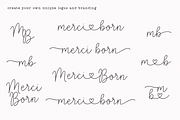 create your own unique logos and branding
MB
merci born
mb
merci born
mb
mb
Merci Born
mb
Merci
Born
merci born
mb